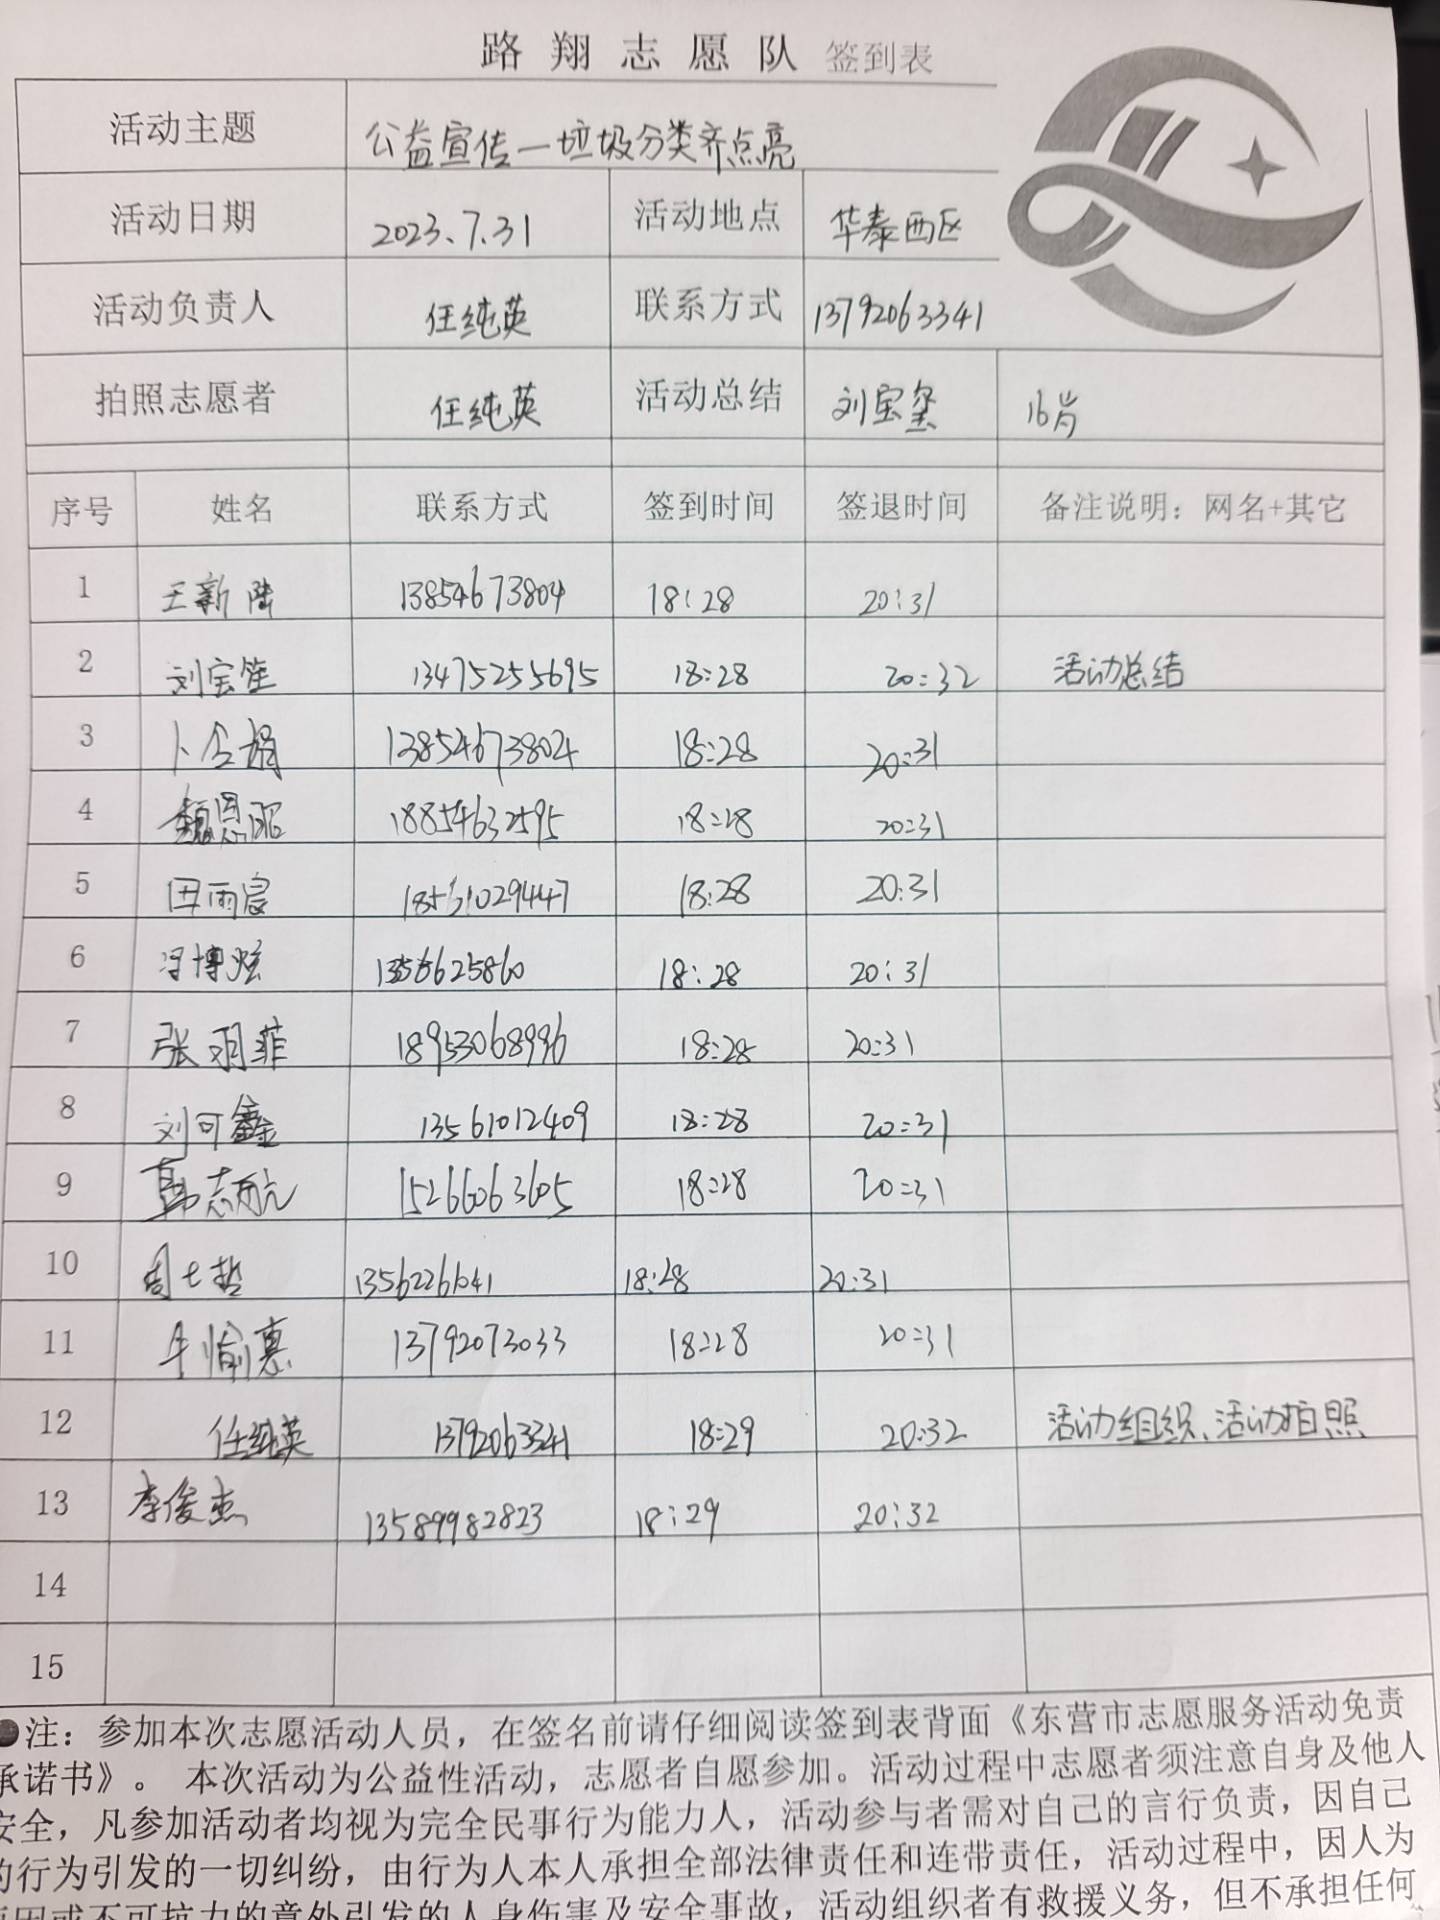 路翔志愿队 签到表
活动主题 公益宣传—垃圾分类齐点亮
活动日期 2023.7.31 活动地点 华泰西区
活动负责人 任纯英 联系方式 13792063341
拍照志愿者 任纯英 活动总结 刘宝玺 16岁
序号 姓名 联系方式 签到时间 签退时间 备注说明：网名+其它
1 王新陆 13854673804 18:28 20:31
2 刘宝笙 13475255695 18:28 20:32 活动总结
3 卜令娟 13854673804 18:28 20:31
4 魏恩昭 18854632595 18:28 20:31
5 田雨宸 18561029447 18:28 20:31
6 冯博炫 18:28 20:31
7 张羽菲 18953068996 18:28 20:31
8 刘可鑫 13561012409 18:28 20:31
9 韩志航 15266063605 18:28 20:31
10 周士哲 18:28 20:31
11 牛愉惠 13792073033 18:28 20:31
12 任纯英 13792063341 18:29 20:32 活动组织、活动拍照
13 李俊杰 13589982823 18:29 20:32
14
15
●注：参加本次志愿活动人员，在签名前请仔细阅读签到表背面《东营市志愿服务活动免责
承诺书》。 本次活动为公益性活动，志愿者自愿参加。活动过程中志愿者须注意自身及他人
安全，凡参加活动者均视为完全民事行为能力人，活动参与者需对自己的言行负责，因自己
的行为引发的一切纠纷，由行为人本人承担全部法律责任和连带责任，活动过程中，因人为
原因或不可抗力的意外引发的人身伤害及安全事故，活动组织者有救援义务，但不承担任何